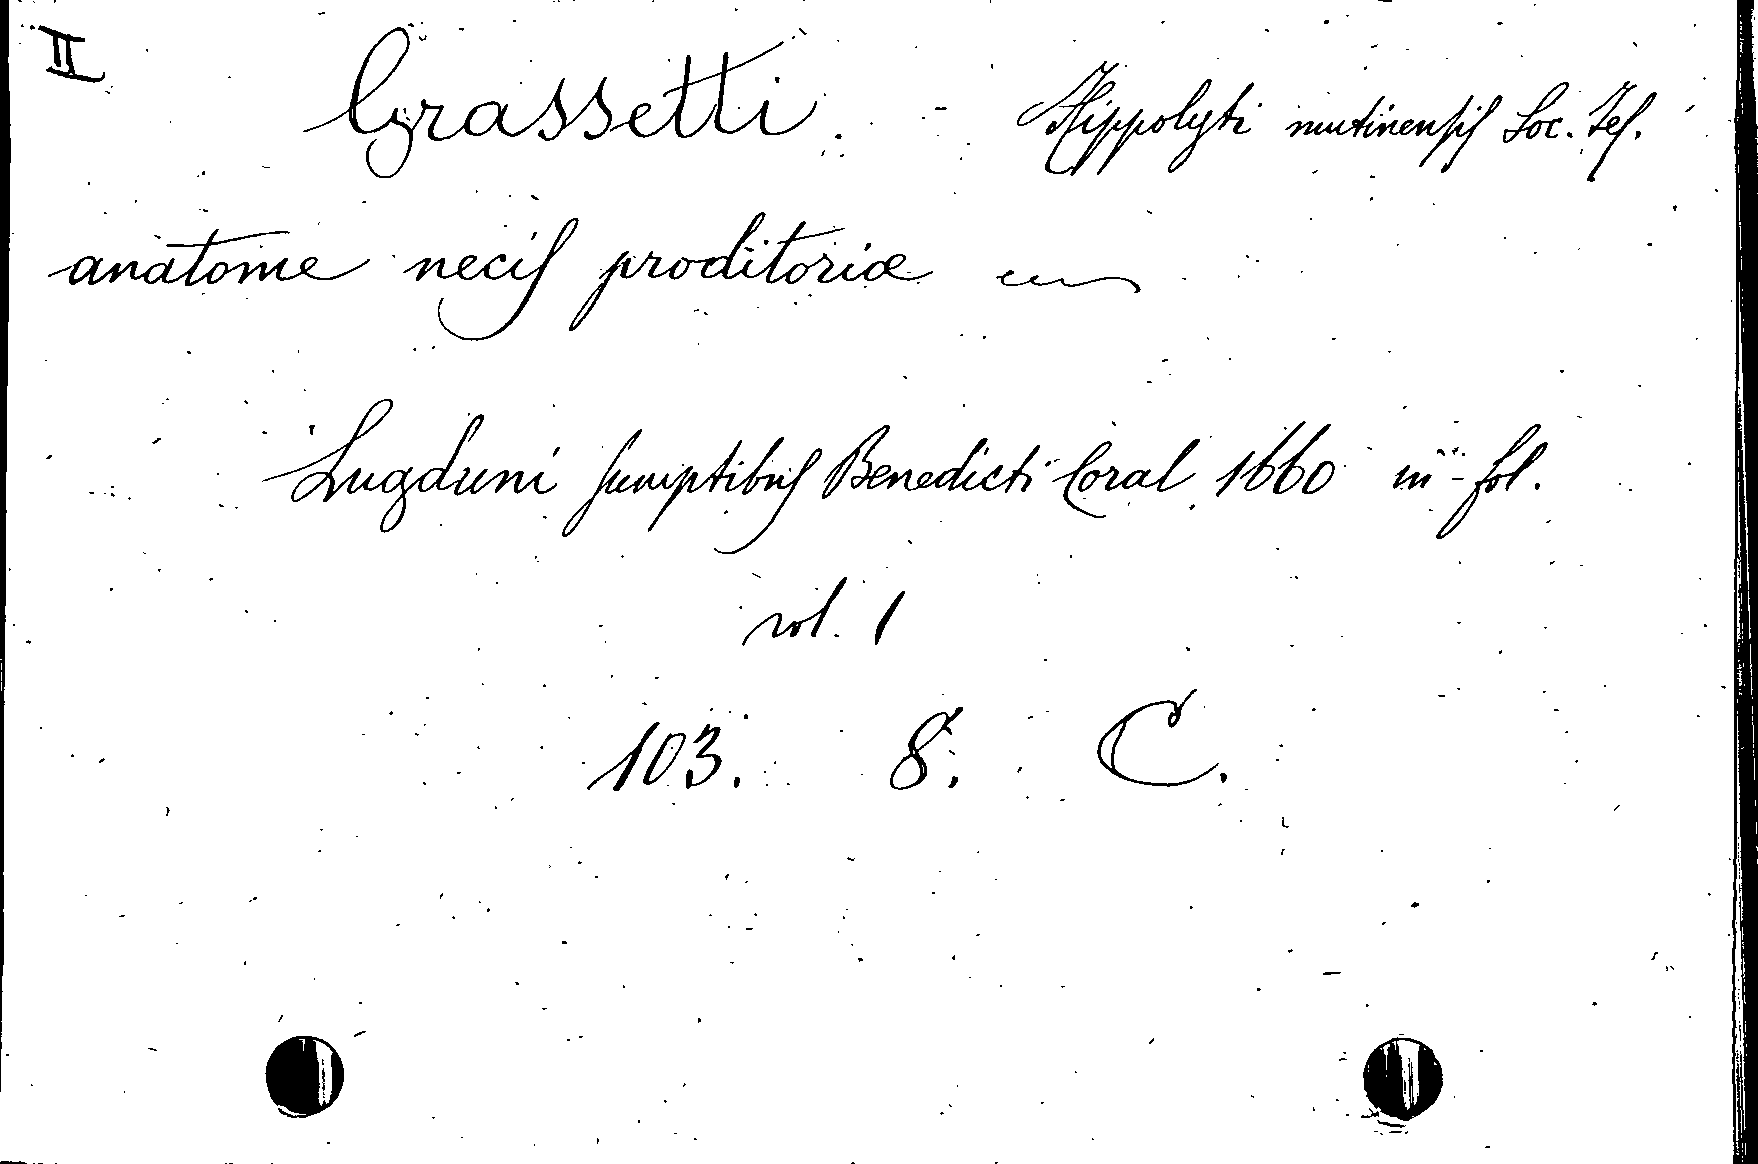 II
Grassetti. - Hippolyti mutinensis Soc. Jes.
anatome necis proditoriæ
Lugduni sumptibus Benedicti Coral 1660 in-fol.
vol. 1
103. 8. C.